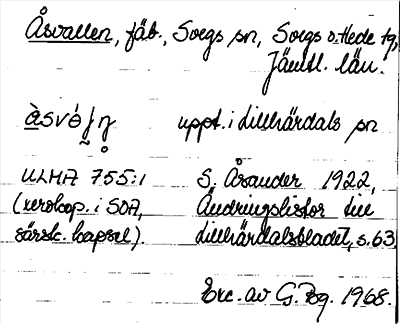 Åsvallen, fäb., Svegs sn, Svegs o. Hede tg,
Jämtl. län.
uppt. i Lillhärdals sn
ULMA 755:1 S. Åsander 1922,
(xerokop. i SOA, Ändringslistor till
särsk. kapsel). Lillhärdalsbladet, s. 63.
Exc. av G. Bg. 1968.